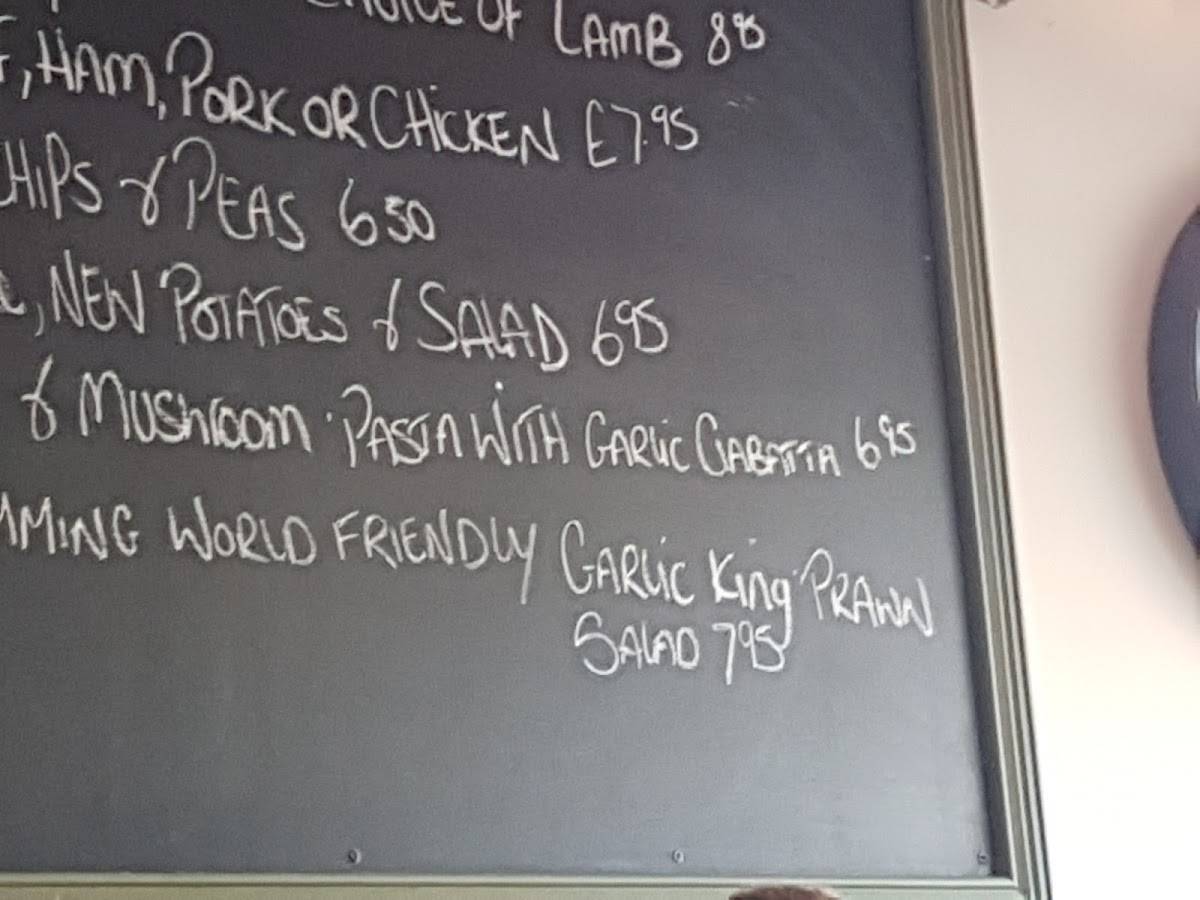 CHOICE OF LAMB 895
, HAM, PORK OR CHICKEN £7.95
CHIPS & PEAS 650
, NEW POTATOES & SALAD 695
& MUSHROOM PASTA WITH GARLIC CIABATTA 695
MMING WORLD FRIENDLY GARLIC KING PRAWN
SALAD 795